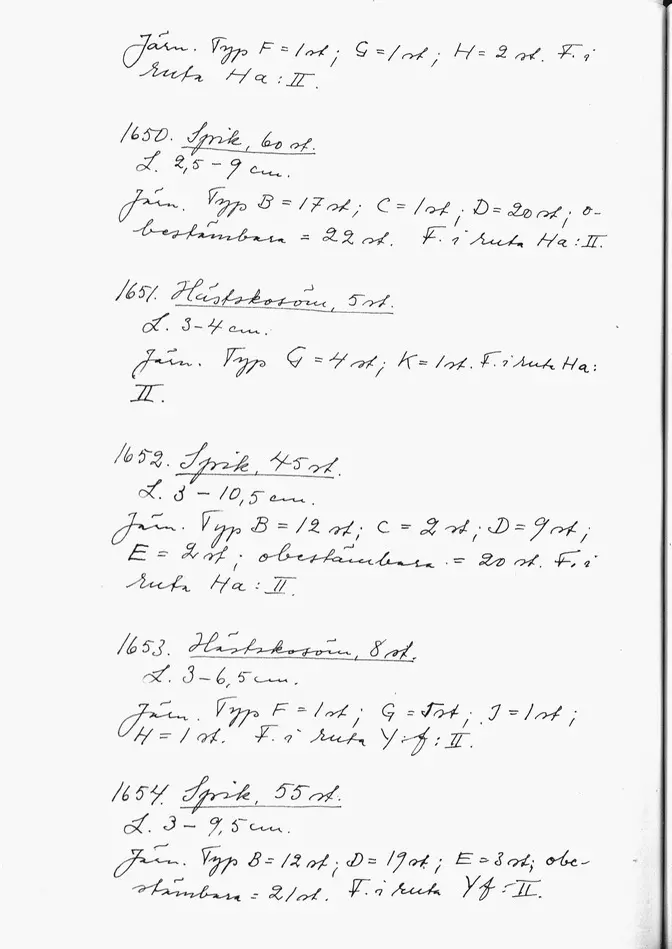 Järn. Typ F = 1 st; G = 1 st; H = 2 st. F. i
ruta Ha : II.
1650. Spik, 60 st.
L. 2,5 – 9 cm.
Järn. Typ B = 17 st; C = 1 st; D = 20 st; o-
bestämbara = 22 st. F. i ruta Ha : II.
1651. Hästskosöm, 5 st.
L. 3-4 cm.
Järn. Typ G = 4 st; K = 1 st. F. i ruta Ha :
II.
1652. Spik, 45 st.
L. 3 – 10,5 cm.
Järn. Typ B = 12 st; C = 2 st; D = 9 st;
E = 2 st; obestämbara = 20 st. F. i
ruta Ha : II.
1653. Hästskosöm, 8 st.
L. 3-6,5 cm.
Järn. Typ F = 1 st; G = 5 st; J = 1 st;
H = 1 st. F. i ruta Y f : II.
1654. Spik, 55 st.
L. 3 – 9,5 cm.
Järn. Typ B = 12 st; D = 19 st; E = 3 st; obe-
stämbara = 21 st. F. i ruta Y f : II.